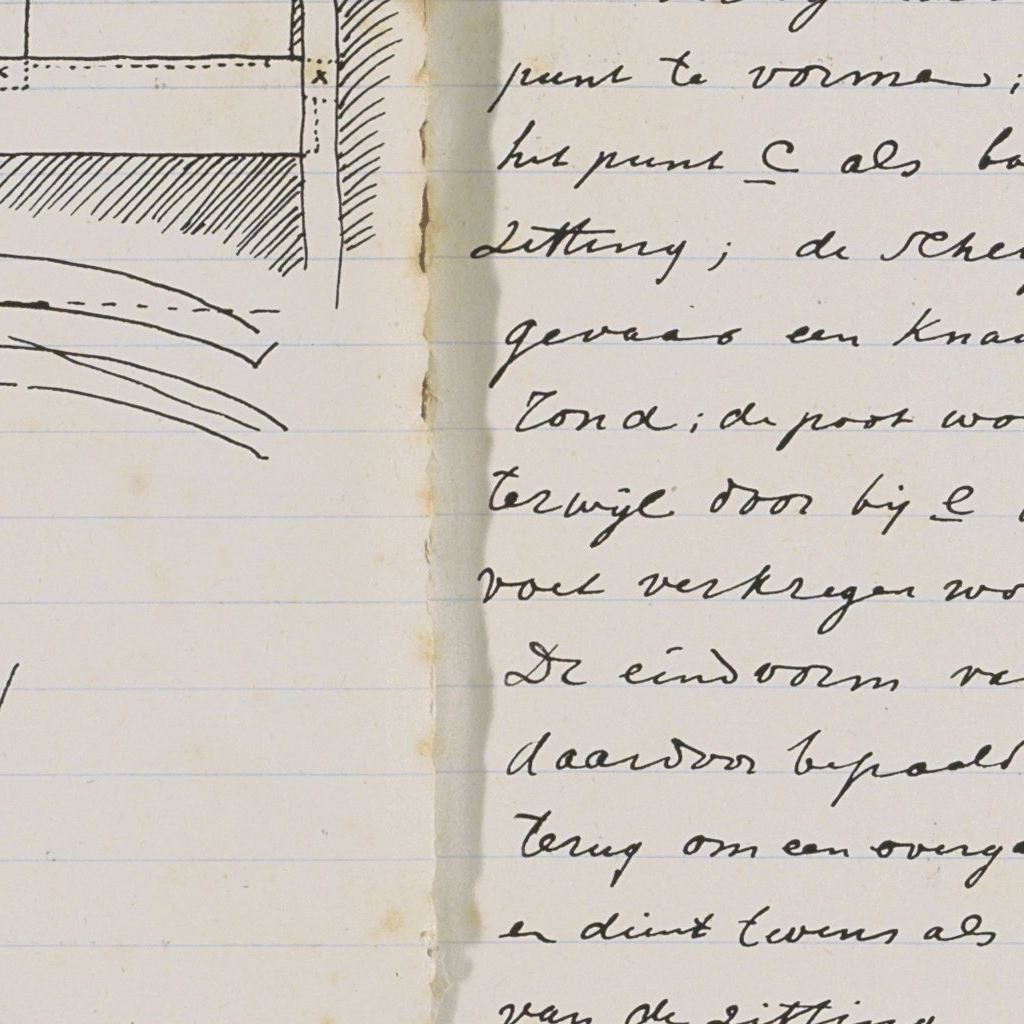 punt te vorme ;
het punt c als
zitting ; de
gevaar een
rond ; de poot
terwijl door bij e
voet verkregen
De eindvorm
daardoor bepaald
terug om een
en dient tevens als
van de zitting